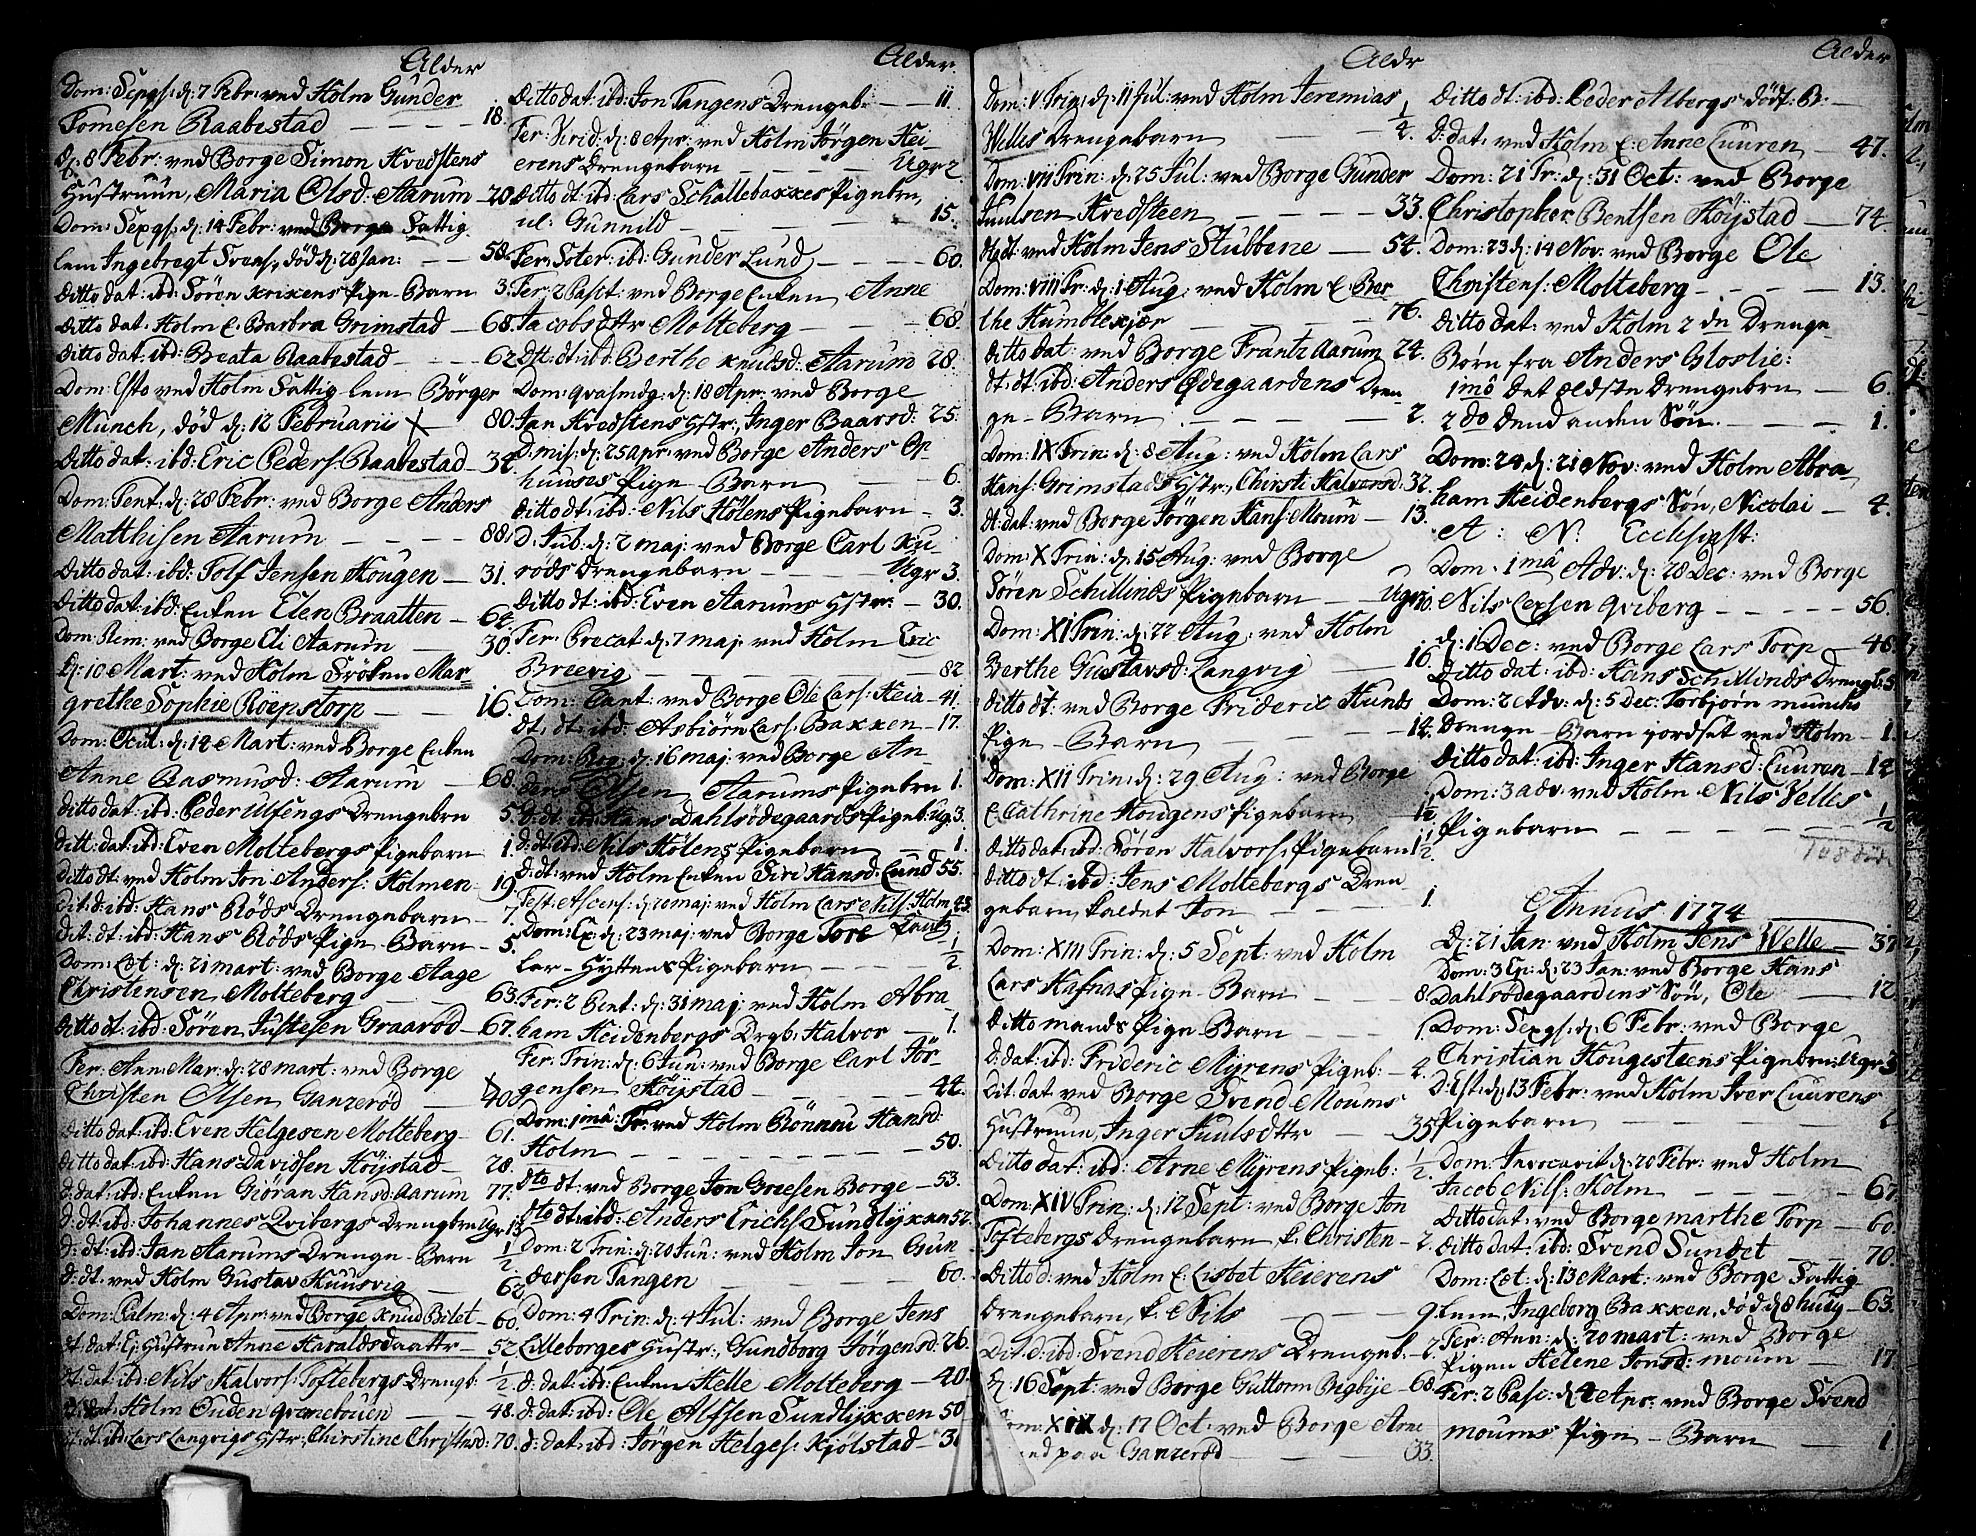 Alder
Dom: Sepgs: d: 7 Febr: ved Holm Gunder
Tomesen Raabestad — 18.
D: 8 Febr: ved Borge Simon Kvedstens
Hustruün, Maria Olsd: Aarum — 20.
Dom: Sexgs: d: 14 Febr: ved Borge Fattig
lem Ingebregt Svens:, død d: 28 Jan: — 58.
Ditto dat: ibd: Sören Krixens Pige-Barn 3.
Ditto dat: Holm E. Barbra Grimstad — 68.
Ditto dat: ibd: Beata Raabestad — 62
Dom: Esto ved Holm Fattig-lem Börger
Munch, død d: 12 Februarii — 80.
Ditto dat: ibd: Eric Peders: Raabestad — 34.
Dom: Tent: d: 28 Febr: ved Borge Anders
Matthisen Aarum — 88.
Ditto dat: ibd: Tolf Jensen Hougen — 31.
Ditto dat: ibd: Enken Elen Braatten — 64.
Dom: Rem: ved Borge Eli Aarum — 30.
D: 10 Mart: ved Holm Fröken Mar-
grethe Sophie Röepstorp — 16.
Dom: Ocul: d: 14 Mart: ved Borge Enken
Anne Rasmusd: Aarum — 68.
Ditto dat: ibd: Peder Ulfengs Drengebrn 5.
Ditt: dat: ibd: Even Moltebergs Pigebarn 1.
Ditto dt: ved Holm Jon Anders: Holmen — 19.
Dit: d: ibd: Hans Röds Drengebarn — 7.
Dit: dt: ibd: Hans Röds Pige-Barn — 5.
Dom: Læt: d: 21 mart: ved Borge Aage
Christensen Molteberg — 63.
Ditto dt: ibd: Sören Justesen Graaröd — 67.
Fer: Ann: Mar: d: 28 mart: ved Borge
Christen Olsen Ganzeröd — 40.
Ditto dat: ibd: Even Helgesen Molteberg — 61.
Ditto dat: ibd: Hans Davidsen Höijstad — 28.
d: dat: ibd: Enken Giöran Hansd: Aarum 77.
d: dt: ibd: Johannes Qvibergs Drengbrn Ugr 13
d: dt: ibd: Jan Aarums Drenge-Barn 1/2
d: dt: ved Holm Gustav Huusvig — 62.
Dom: Palm: d: 4 Apr: ved Borge Knud Bilet — 60.
dt: dat: Ej: Hustrun Anne Haraldsdaattr — 52
dt: dat: ibd: Nils Halvors: Toftebergs Drengb: 1/2
dat: Holm Ouden Qvernebouen — 48.
dt: ibd: Lars Langvigs Hstr: Chirstine Christensd: 70.
Alder.
Ditto dat: ibd: Jon Tangens Drengeb: — 11.
Fer: Virid: d: 8 Apr: ved Holm Jörgen Hei-
erens Drengebarn — Ugr 2
Ditto dt: ibd: Lars Schallebakkes Pigebrn,
ul: Gunnild — 15.
Fer: Soter: ibd: Gunder Lund — 60.
Fer: 2 Pasc: ved Borge Enken Anne
Jacobsdttr Molteberg — 68.
Ditt: dt: ibd: Berthe Knudsd: Aarum 28.
Dom: Qvasmdg: d: 18 Apr: ved Borge
Jan Hvedstens Hstr:, Inger Baarsd: 25.
D: mis: d: 25 Apr: ved Borge Anders Op-
huuses Pige-Barn — 6.
Ditto dt: ibd: Nils Hölens Pigebarn — 3.
D. Jub: d: 2 maj: ved Borge Carl Ku-
röds Drengebarn — Ugr 3.
Ditto dt: ibd: Even Aarums Hstr: — 30.
Fer: Precat: d: 7 maj: ved Holm Eric
Breevig — 82
Dom: Cant: ved Borge Ole Lars: Heia — 41.
dt: dt: ibd: Asbiörn Lars: Bakken — 17.
Dom: Rog: d: 16 maj: ved Borge An-
ders Olsen Aarums Pigebrn 1.
d: dt: ibd: Hans Dahlsödegaards Pigeb: Ug: 3.
d: dt: ibd: Nils Hölens Pigebarn — 1.
d: dt: ved Holm Enken Siri Hansd: Lund 55.
Fest: Ascens: d: 20 maj: ved Holm Lars Nils: Holm 43.
Dom: Ex: d: 23 maj: ved Borge Tore
ler-Hyttens Pigebarn — 1/2
Fer: 2 Pent: d: 31 maj: ved Holm Abra
ham Heidenbergs Drgb: Halvor — 1.
Fer: Trin: d: 6 Jun: ved Borge Carl Jör-
gensen Höijstad — 44.
Dom: 1mâ Tr: ved Holm Rönnau Hansd:
Holm — 50.
dto dt: ved Borge Jon Greesen Borge — 53.
dto dt: ibd: Anders Erichs: Sundlykken 52.
Dom: 2 Trin: d: 20 Jun: ved Holm Jon Gun
dersen Tangen — 60.
Dom: 4 Trin: d: 4 Jul: ved Borge Jens
Lilleborges Hustr:, Gundborg Jörgensd: 26.
d: dat: ibd: Enken Helle Molteberg — 40.
d: dat: ibd: Ole Alfsen Sundlykken 50
d: dat: ibd: Jörgen Helges: Kjölstad — 3
Aldr
Dom: V Trin: d: 11 Jul: ved Holm Jeremias
Welles Drengebarn — 1/4.
Dom: VII Trin: d: 25 Jul: ved Borge Gunder
Juulsen Kvedsteen — 33.
dt: ved Holm Jens Stubbene — 54.
Dom: VIII Tr: d: 1 Aug: ved Holm E Ber
the Humblekjær — 76.
Ditto dat: ved Borge Frantz Aarum 24.
dt: dt: ibd: Anders Ødegaardens Dren-
ge-Barn — 2.
Dom: IX Trin: d: 8 Aug: ved Holm Lars
Hans: Grimstads Hstr:, Chirsti Halvorsd: 32.
dt: dat: ved Borge Jörgen Hans: Moum — 13.
Dom: X Trin: d: 15 Aug: ved Borge
Sören Schillinds Pigebarn — Ugr 10.
Dom: XI Trin: d: 22 Aug: ved Holm
Berthe Gustavsd: Langvig — 16.
Ditto dt: ved Borge Friderix Hunds
Pige-Barn — 14.
Dom: XII Trin: d: 29 Aug: ved Borge
E. Cathrine Hougens Pigebarn 1 1/2
Ditto dat: ibd: Sören Halvors: Pigebarn 1 1/2.
Ditto dt: ibd: Jens Moltebergs Dren-
gebarn, kaldet Jon — 1.
Dom: XIII Trin: d: 5 Sept: ved Holm
Lars Hafnas Pige-Barn — 8.
Ditto mands Pige-Barn — 1.
d: dat: ibd: Frideric Myrens Pigeb: — 2.
Dit: dat: ved Borge Svend Moums
Hustruun, Inger Juulsdttr — 35
Ditto dat: ibd: Arne Myrens Pigeb: 1/2.
Dom: XIV Trin: d: 12 Sept: ved Borge Jon
Toftebergs Drengebarn k. Christen — 2.
Ditto d: ved Holm E. Lisbet Heierens
Drengebarn, k. Nils — 9.
Dit: d: ibd: Svend Heierens Drengeb: — 2.
D: 16 Sept: ved Borge Guttorm Bigbije — 68.
Dom: XIX d: 17 Oct: ved Borge Arne
paa Ganzeröd — 33.
Alder
Ditto dt: ibd: Peder Albergs dödf: B: —
D: dat: ved Holm E. Anne Cuuren — 47.
Dom: 21 Tr: d: 31 Oct: ved Borge
Christopher Bentsen Höijstad — 74.
Dom: 23 d: 14 Nov: ved Borge Ole
Christens: Molteberg — 13.
Ditto dat: ved Holm 2 de Drenge-
Börn fra Anders Gloslie:
1mô Det Ældste Drengebrn — 6.
2do Dend anden Sön — 1.
Dom: 24 d: 21 Nov: ved Holm Abra-
ham Heidenbergs Sön, Nicolai — 4.
A: N: Ecclesiast:
Dom: 1mâ Adv: d: 28 Dec: ved Borge
Nils Lexsen Qviberg — 56.
d: 1 Dec: ved Borge Lars Torp — 48.
Ditto dat: ibd: Hans Schillinds Drengb: 5
Dom: 2 Adv: d: 5 Dec: Torbjørn Munchs
Drenge-Barn jordset ved Holm — 1.
Ditto dat: ibd: Inger Hansd: Cuuren — 14
Dom: 3 adv: ved Holm Nils Velles
Pigebarn — 1/2
Annus 1774
D: 21 Jan: ved Holm Jens Welle — 37
Dom: 3 Ep: d: 23 Jan: ved Borge Hans
Dahlsödegaardens Sön, Ole — 12.
Dom: Sexgs: d: 6 Febr: ved Borge
Christian Hougesteens Pigebrn: Ugr 3
D: Est: d: 13 Febr: ved Holm Iver Cuurens
Pigebarn —
Dom: Invocavit d: 20 Febr: ved Holm
Jacob Nils: Holm — 67.
Ditto dat: ved Borge Marthe Torp — 60.
Ditto dat: ibd: Svend Sundet — 70.
Dom: Læt: d: 13 Mart: ved Borge Fattig
Lem, Ingeborg Bakken, død d: 8 huj: — 63.
Fer: Ann: d: 20 mart: ved Borge
Pigen Helene Jonsd: Moum — 17
Fer: 2 Pasc: d: 4 Apr: ved Borge Svend
Moums Pige-Barn — 1.